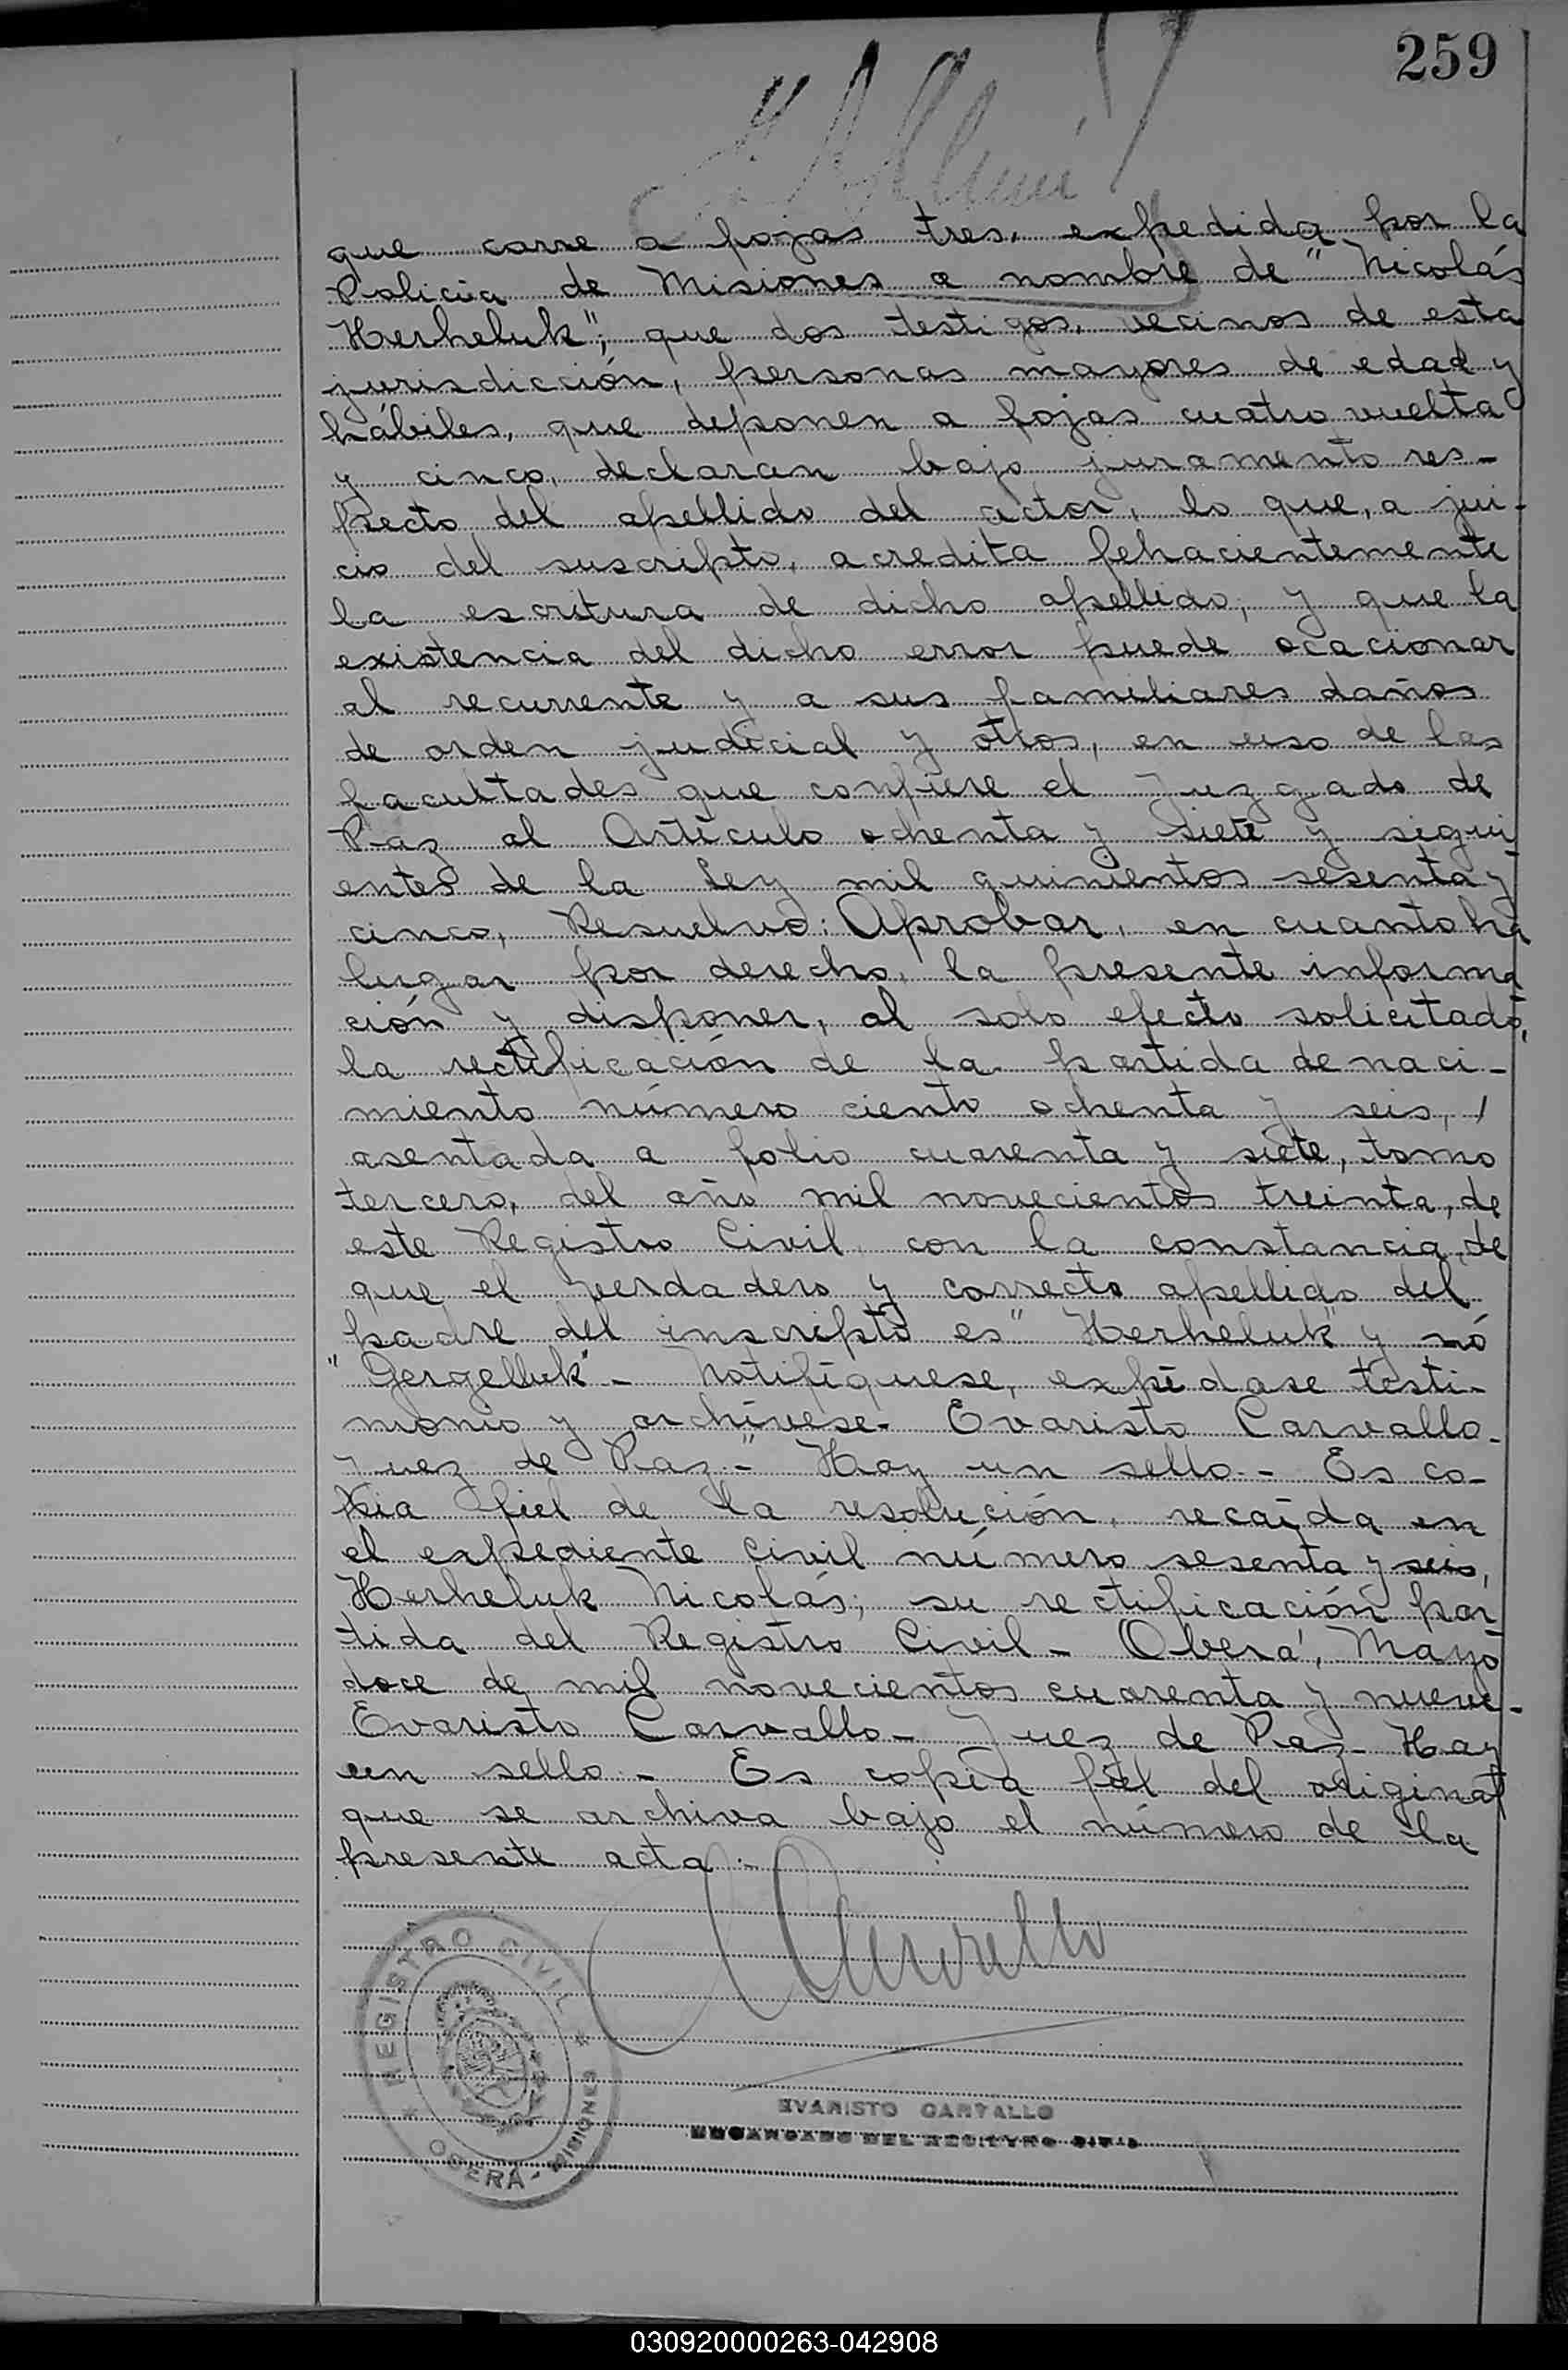 259
que corre a fojas tres, expedida por la
Policia de Misiones a nombre de "Nicolás
Herheluk"; que dos testigos, vecinos de esta
jurisdicción, personas mayores de edad y
hábiles, que deponen a fojas cuatro vuelta
y cinco, declaran bajo juramento res-
pecto del apellido del actor, lo que, a jui-
cio del suscripto, acredita fehacientemente
la escritura de dicho apellido; y que la
existencia del dicho error puede ocacionar
al recurrente y a sus familiares daños
de orden judicial y otros, en uso de las
facultades que confiere el Juzgado de
Paz al Artículo ochenta y siete y sigui
entes de la Ley mil quinientos sesenta y
cinco, Resuelvo: Aprobar, en cuanto ha
lugar por derecho, la presente informa
ción y disponer, al solo efecto solicitado,
la rectificación de la partida de naci-
miento número ciento ochenta y seis, /
asentada a folio cuarenta y siete, tomo
tercero, del año mil novecientos treinta, de
este Registro Civil, con la constancia, de
que el verdadero y correcto apellido del
padre del inscripto es "Herheluk" y nó
"Gergelluk"- Notifíquese, expídase testi-
monio y archívese- Evaristo Carvallo-
Juez de Paz-" Hay un sello- Es co-
pia fiel de la resolución, recaída en
el expediente civil número sesenta y seis,
Herheluk Nicolás; su rectificación par
tida del Registro Civil- Oberá, Mayo
doce de mil novecientos cuarenta y nueve-
Evaristo Carvallo- Juez de Paz- Hay
un sello- Es copia fiel del original
que se archiva bajo el número de la
presente acta.-
Carvallo
REGISTRO CIVIL
OBERÁ - MISIONES
EVARISTO CARVALLO
ENCARGADO DEL REGISTRO CIVIL
030920000263-042908